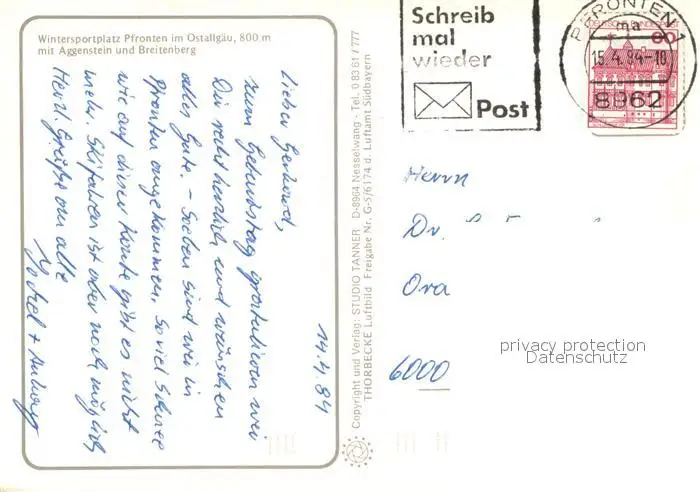 Wintersportplatz Pfronten im Ostallgäu, 800 m
mit Aggenstein und Breitenberg
14.4.84
Lieber Gerhard,
zum Geburtstag gratulieren wir
Dir recht herzlich und wünschen
alles Gute. - Soeben sind wir in
Pfronten angekommen. So viel Schnee
wie auf dieser Karte gibt es nicht
mehr. Skifahren ist aber noch möglich
Herzl. Grüße an alle
Copyright und Verlag: STUDIO TANNER D-8964 Nesselwang - Tel. 0 83 61 / 777
THORBECKE Luftbild Freigabe Nr. G-5/6174 d. Luftamt Südbayern
Schreib
mal
wieder
Post
PFRONTEN 1
ma
15.4.84-10
8962
DEUTSCHE BUNDESPOST
60
Herrn
Dr.
6000
privacy protection
Datenschutz